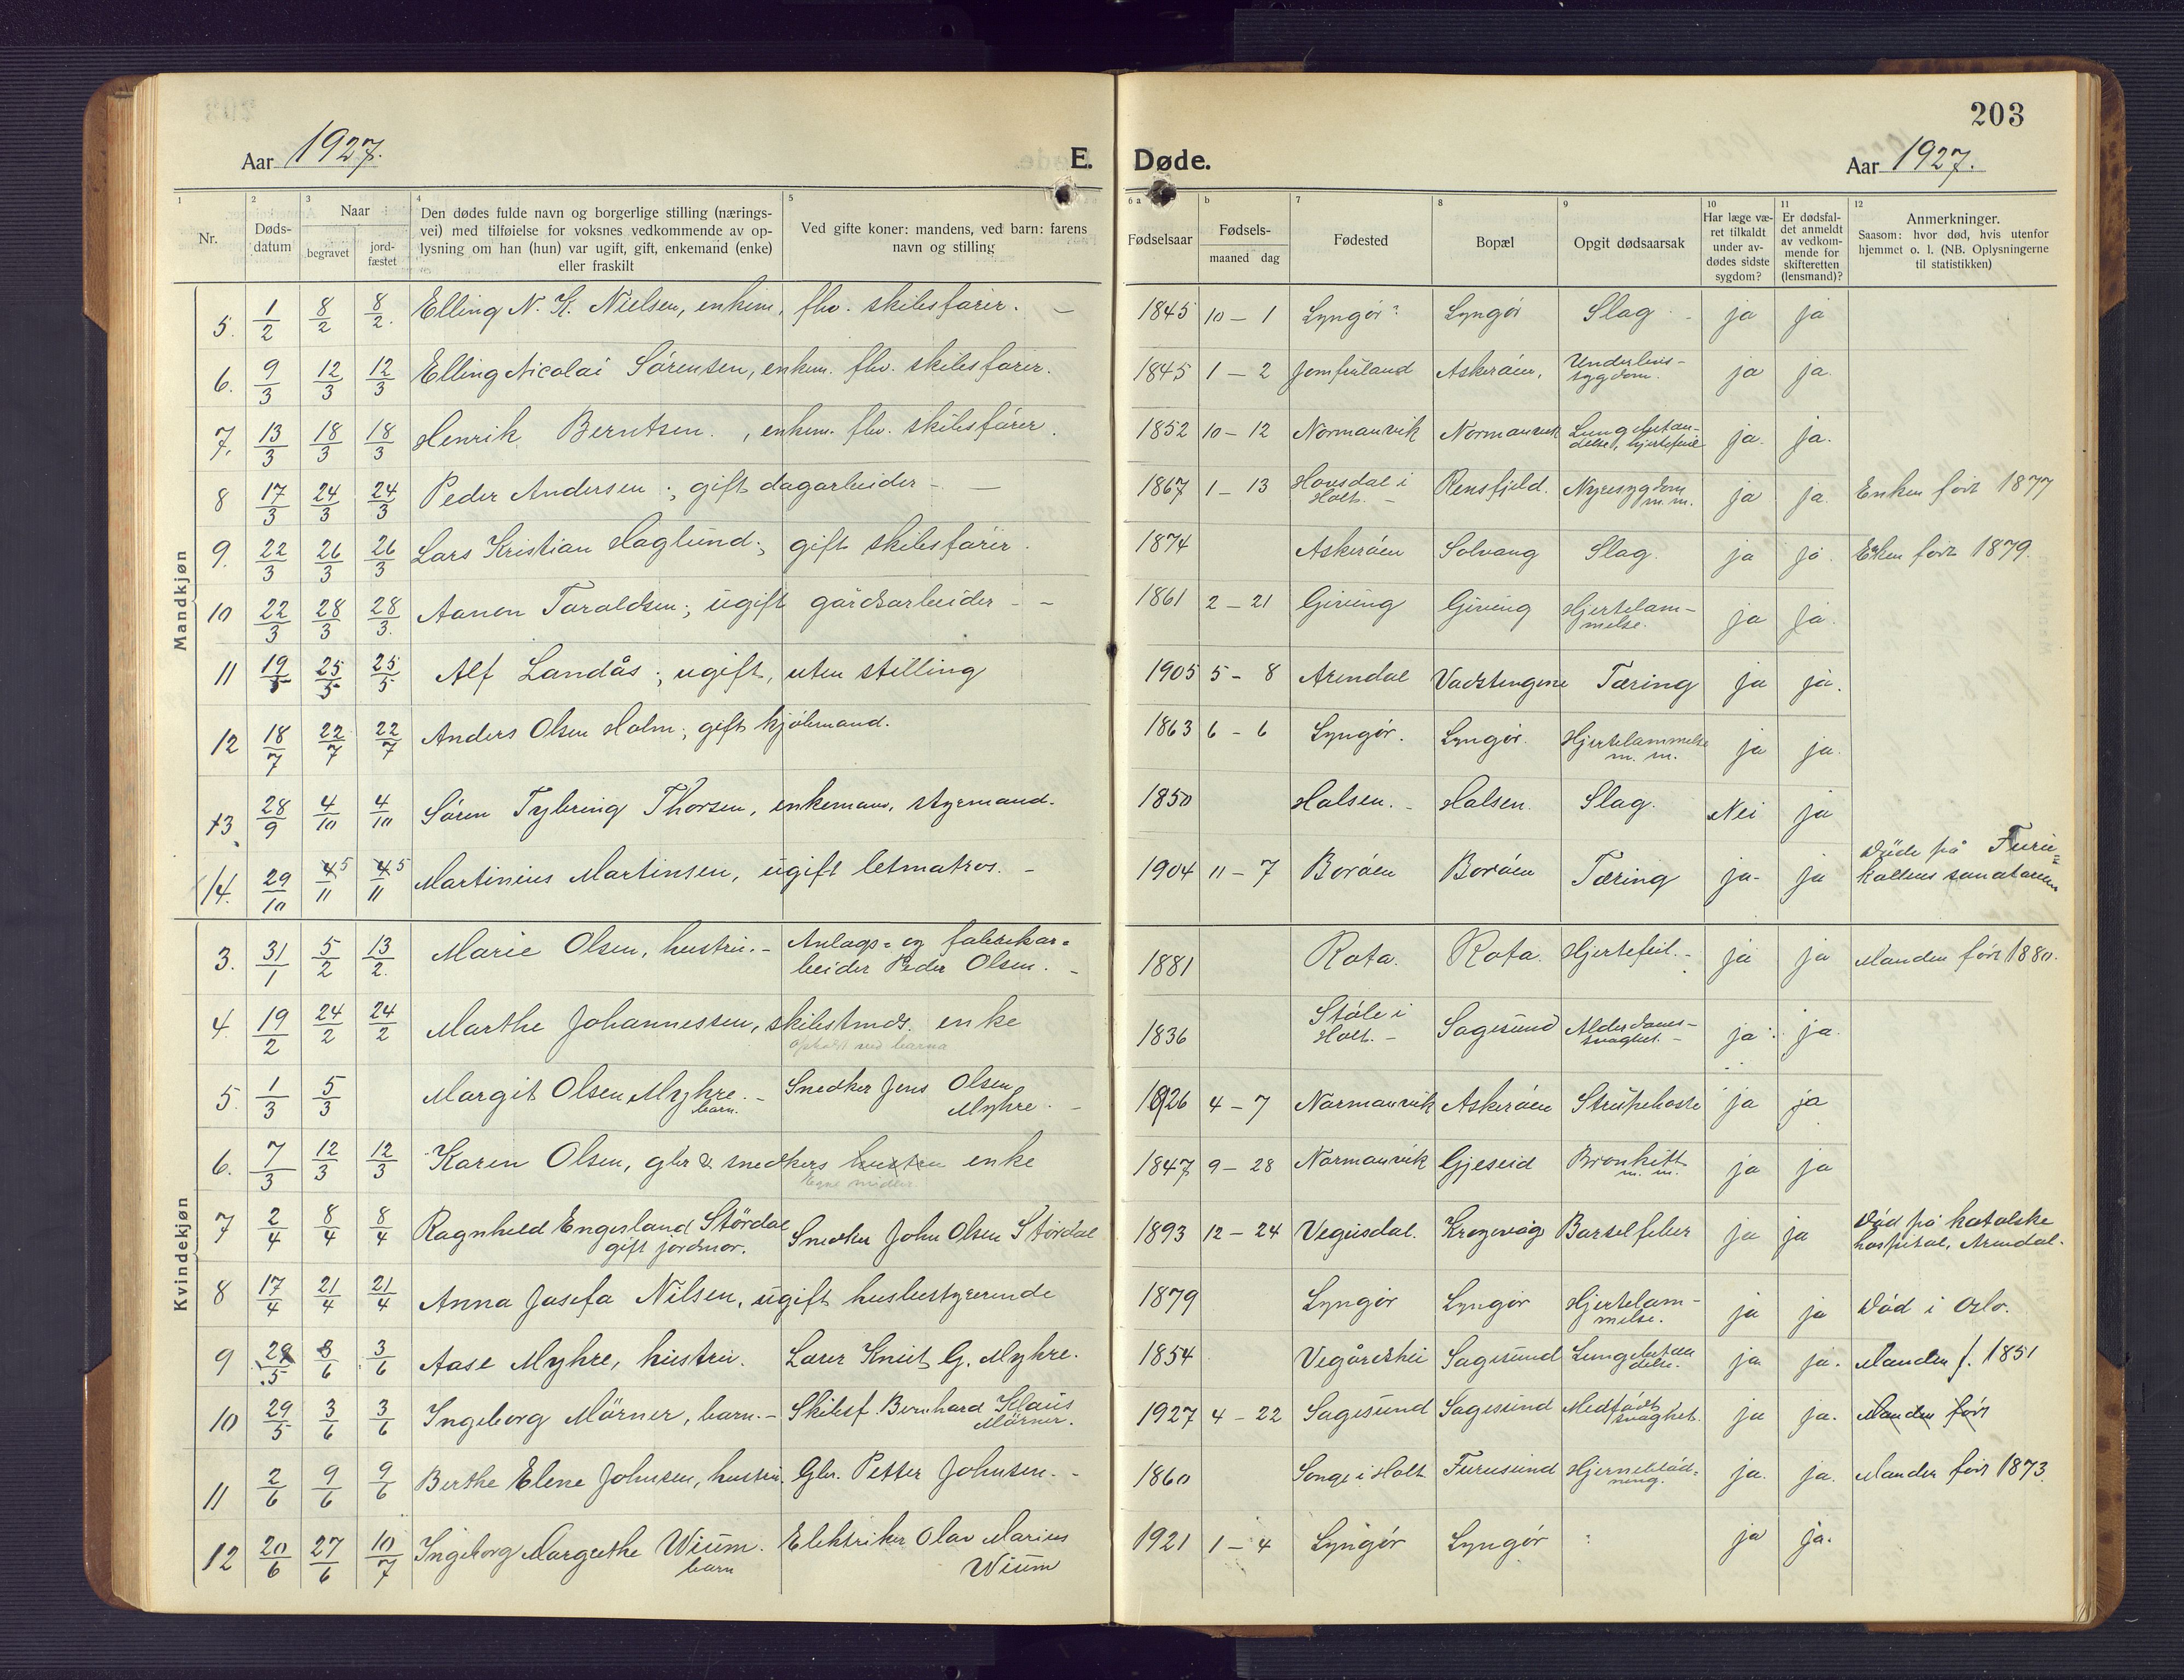 203
Aar 1927. E. Døde. Aar 1927.
1 Nr.
2 Døds-datum
3 Naar begravet jord-fæstet
4 Den dødes fulde navn og borgerlige stilling (nærings-
vei) med tilføielse for voksnes vedkommende av op-
lysning om han (hun) var ugift, gift, enkemand (enke)
eller fraskilt
5 Ved gifte koner: mandens, ved barn: farens
navn og stilling
6 a Fødselsaar
b Fødsels- maaned dag
7 Fødested
8 Bopæl
9 Opgit dødsaarsak
10 Har læge væ-
ret tilkaldt
under av-
dødes sidste
sygdom?
11 Er dødsfal-
det anmeldt
av vedkom-
mende for
skifteretten
(lensmand)?
12 Anmerkninger.
Saasom: hvor død, hvis utenfor
hjemmet o. l. (NB. Oplysningerne
til statistikken)
Mandkjøn
5. 1/2 8/2 8/2. Elling N. K. Nielsen, enkem, fhv. skibsfører. – 1845 10 – 1 Lyngør? Lyngør Slag - ja ja
6. 9/3 12/3 12/3 Elling Nicolai Sørensen, enkem. fhv. skibsfører. 1845 1 – 2 Jomfruland Askerøen, Underlivs-
sygdom. ja ja.
7. 13/3 18/3 18/3 Henrik Berntsen., enkem. fhv. skibsfører. 1852 10 – 12 Normanvik Normanvik Lungebetæn-
delse, hjertefeil ja. ja.
8 17/3 24/3 24/3 Peder Andersen; gift dagarbeider – – 1867 1 – 13 Hovsdal i
Holt. – Rensfjeld. Nyresygdom
m.m. ja ja. Enken født 1877
9. 22/3 26/3 26/3 Lars Kristian Haglund; gift skibsfører. 1874 Askerøen Solvang Slag. ja ja. Enken født 1879.
10 22/3 28/3 28/3. Aanon Taraldsen; ugift gårdsarbeider – – 1861 2 – 21 Giving Giving Hjertelam-
melse. ja ja.
11 19/5 25/5 25/5 Alf Landås; ugift, uten stilling 1905 5 – 8 Arendal Vadstengene Tæring ja ja.
12 18/7 22/7 22/7 Anders Olsen Holm; gift kjøbmand. 1863 6 – 6 Lyngør. Lyngør. Hjertelammelse
m. m. ja ja.
13 28/9 4/10 4/10 Søren Tybring Thorsen, enkeman, styrmand. 1850 Halsen. – Halsen. Slag. Nei ja
14. 29/10 5/11 5/11 Martinius Martinsen, ugift letmatros. – 1904 11 – 7 Borøen Borøen Tæring ja– ja Døde på Furu=
kollens sanatorium
Kvindekjøn
3. 31/1 5/2 13/2. Marie Olsen, hustru. – Anlags= og fabrikar=
beider Peder Olsen. – 1881 Rota. Rota. Hjertefeil. – ja ja Manden født 1880.
4. 19/2 24/2 24/2 Marthe Johannessen, skibstmds. enke
ophold ved barna 1836 Støle i
Holt. – Sagesund Alderdoms-
svaghet. – ja ja.
5. 1/3 5/3 Margit Olsen Myhre. –
barn. Snedker Jens Olsen
Myhre. – 1926 4 – 7 Normanvik Askerøen Strupehoste ja ja
6. 7/3 12/3 12/3 Karen Olsen, gbr & snedkers hustru enke
Egne midler 1847 9 – 28 Normanvik Gjeseid Bronkitt
m. m. ja ja
7 2/4 8/4 8/4 Ragnhild Engesland Størdal
gift jordmor. Snedker John Olsen Størdal 1893 12 – 24 Vegusdal. Krogevåg Barselfeber ja ja Død på katolske
hospital, Arendal.
8 17/4 21/4 21/4 Anna Josefa Nilsen, ugift husbestyrerinde 1879 Lyngør Lyngør Hjertelam-
melse. ja ja Død i Oslo.
9 28/5 3/6 3/6 Aase Myhre, hustru. Lærer Knut G. Myhre. 1854 Vegårshei Sagesund Lungebetæn
delse. ja ja. Manden f. 1851
10 29/5 3/6 3/6 Ingeborg Mörner, barn. – Skibsf. Bernhard Klaus
Mörner. 1927 4 – 22 Sagesund Sagesund Medfødt
svaghet. ja ja. Manden født
11 2/6 9/6 9/6 Berthe Elene Johnsen, hustru. Gbr. Petter Johnsen. – 1860 Songe i Holt Furusund Hjerneblød=
ning. ja. ja. Manden født 1873.
12 20/6 27/6 10/7 Ingeborg Margrethe Wium.
barn Elektriker Olav Marius
Wium 1921 1 – 4 Lyngør Lyngør ja ja.